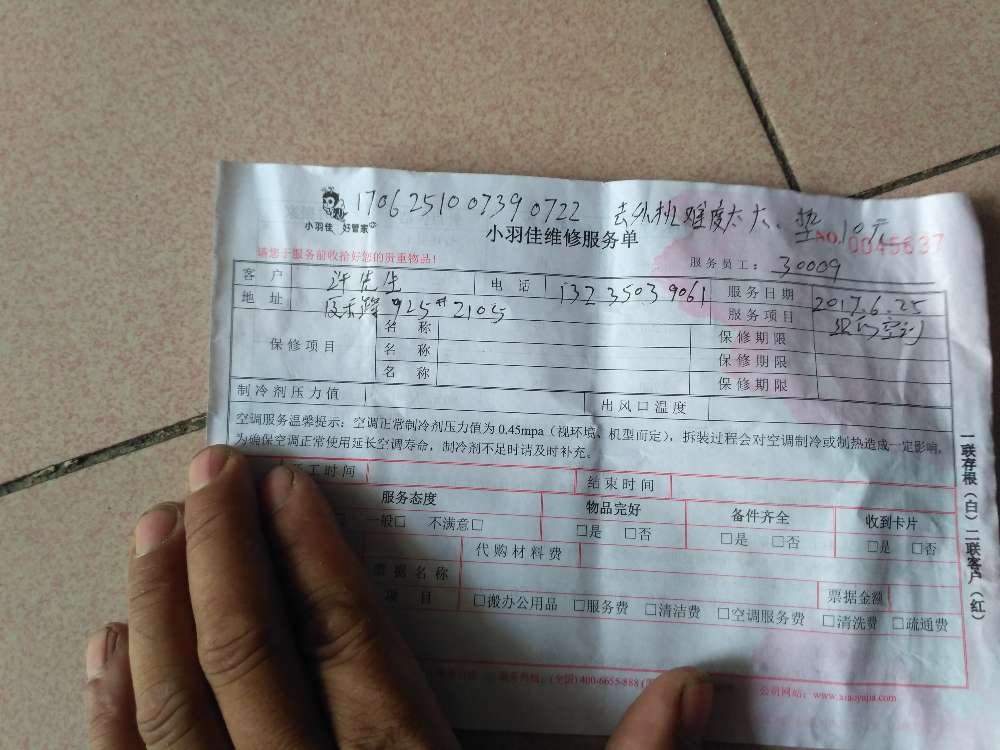 1706251007390722 去外机难度太大、垫10元
小羽佳 好管家
小羽佳维修服务单
NO. 0045637
请您于服务前收拾好您的贵重物品!
服务员工: 30009
客户 许先生 电话 13235039061 服务日期 2017.6.25
地址 925#2105 服务项目
保修项目 名称 保修期限
名称 保修期限
名称 保修期限
制冷剂压力值 出风口温度
空调服务温馨提示: 空调正常制冷剂压力值为 0.45mpa (视环境、机型而定), 拆装过程会对空调制冷或制热造成一定影响,
为确保空调正常使用延长空调寿命, 制冷剂不足时请及时补充。
工时间 结束时间
服务态度 物品完好 备件齐全 收到卡片
一般□ 不满意□ □是 □否 □是 □否 □是 □否
代购材料费
票据名称 票据金额
项目 □搬办公用品 □服务费 □清洁费 □空调服务费 □清洗费 □疏通费
(全国) 400-6655-888 公司网站: www.xiaoyujia.com
一联存根(白)二联客户(红)